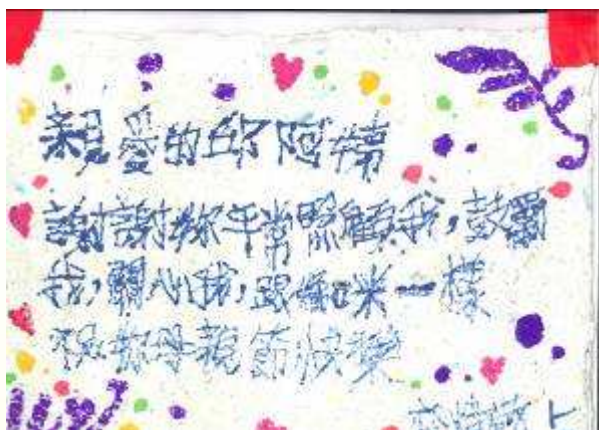 親愛的邱阿精
謝謝妳平常照顧我,鼓勵
我,關心我,跟媽咪一樣
祝妳母親節快樂
上